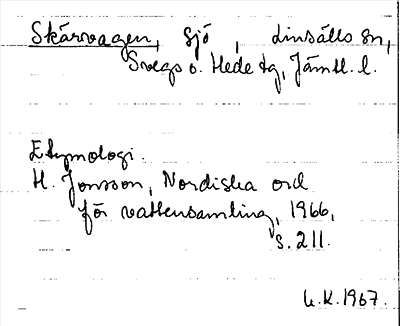 Skärvagen, sjö, Linsälls sn,
Svegs o. Hede tg, Jämtl. l.
Etymologi.
H. Jonsson, Nordiska ord
för vattensamling, 1966,
s. 211.
U.K. 1967.